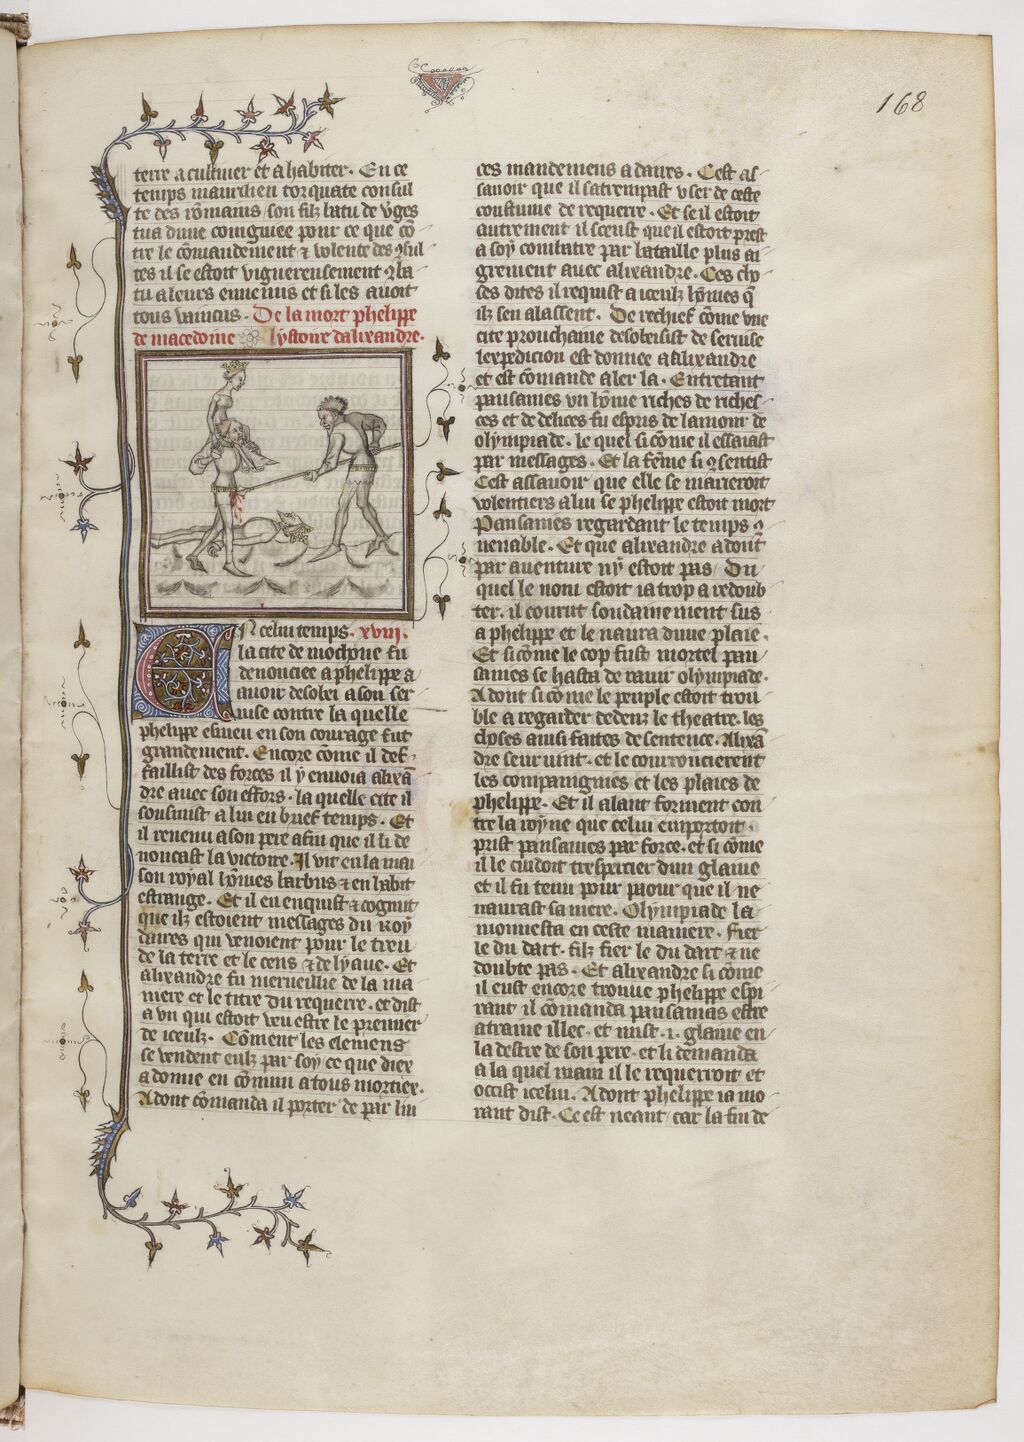 168
terre a cultiuer et a habiter. En ce
temps maurilien torquate consul
te des rōmains son filz latu de v̄ges
tua dune coingniee pour ce que cō
tre le cōmandement & volente des ꝯsul
tes il se estoit viguereusement ꝯba
tu a leurs ennemis et si les auoit
tous vaincus. De la mort phelippe
de macedoine lystoire dalixandre.
EN celui temps. xviij.
la cite de mochone fu
denonciee a phelippe a
auoir desobei a son ser
uise contre la quelle
phelippe esmeu en son courage fut
grandement. Encore cōme il def
faillist des forces il y enuoia alixā
dre auec son effors. la quelle cite il
sousmist a lui en brief temps. Et
il reuenu a son pere afin que il li de
noncast la victoire. Il vit en la mai
son royal hōmes barbus & en habit
estrange. Et il en enquist & cognut
que ilz estoient messages du roy
daires qui venoient pour le treu
de la terre et le cens & de lyaue. Et
alixandre fu merueillie de la ma
niere et le titre du requerre. et dist
a vn qui estoit veu estre le premier
de iceulz. Cōment les elemens
se vendent eulz par soy ce que diex
a donne en cōmun a tous mortiex.
Adont cōmanda il porter de par lui
ces mandemens a daires. Cest as
sauoir que il satrempast vser de ceste
coustume de requerre. Et se il estoit
autrement il sceust que il estoit prest
a soy combatre par bataille plus ai
grement auec alixandre. Ces cho
ses dites il requist a iceulz hōmes q̄
ilz sen alassent. De rechief cōme vne
cite prouchaine desobeisist de seruise
lexpedicion est donnee a alixandre
et est cōmande aler la. Entretant
pausanies vn hōme riches de riches
ces et de delices fu espris de lamour de
olympiade. le quel si cōme il essaiast
par messages. Et la fēme si ꝯsentist
Cest assauoir que elle se marieroit
volentiers a lui se phelippe estoit mort
Pausanies regardant le temps ꝯ
uenable. Et que alixandre adont
par auenture ny estoit pas Du
quel le nom estoit ia trop a redoub
ter. il courut soudainement sus
a phelippe et le naura dune plaie.
Et si cōme le cop fust mortel pau
sanies se hasta de rauir olympiade.
Adont si cōme le peuple estoit trou
ble a regarder dedenz le theatre. les
choses ainsi faites de sentence. Alixā
dre seuruint. et le courroucierent
les compaingnies et les plaies de
phelippe. Et il alant forment con
tre la royne que celui emportoit.
prist pausanies par force. et si cōme
il le cuidoit trespercier dun glaiue
et il fu tenu pour paour que il ne
naurast sa mere. Olympiade la
monnesta en ceste maniere. Fier
le du dart. filz fier le du dart & ne
doubte pas. Et alixandre si cōme
il eust encore trouue phelippe espi
rant il cōmanda pausanias estre
atraine illec. et mist .i. glaiue en
la destre de son pere. et li demanda
a la quel main il le requerroit et
occist icelui. Adont phelippe ia mo
rant dist. Ce est neant car la fin de